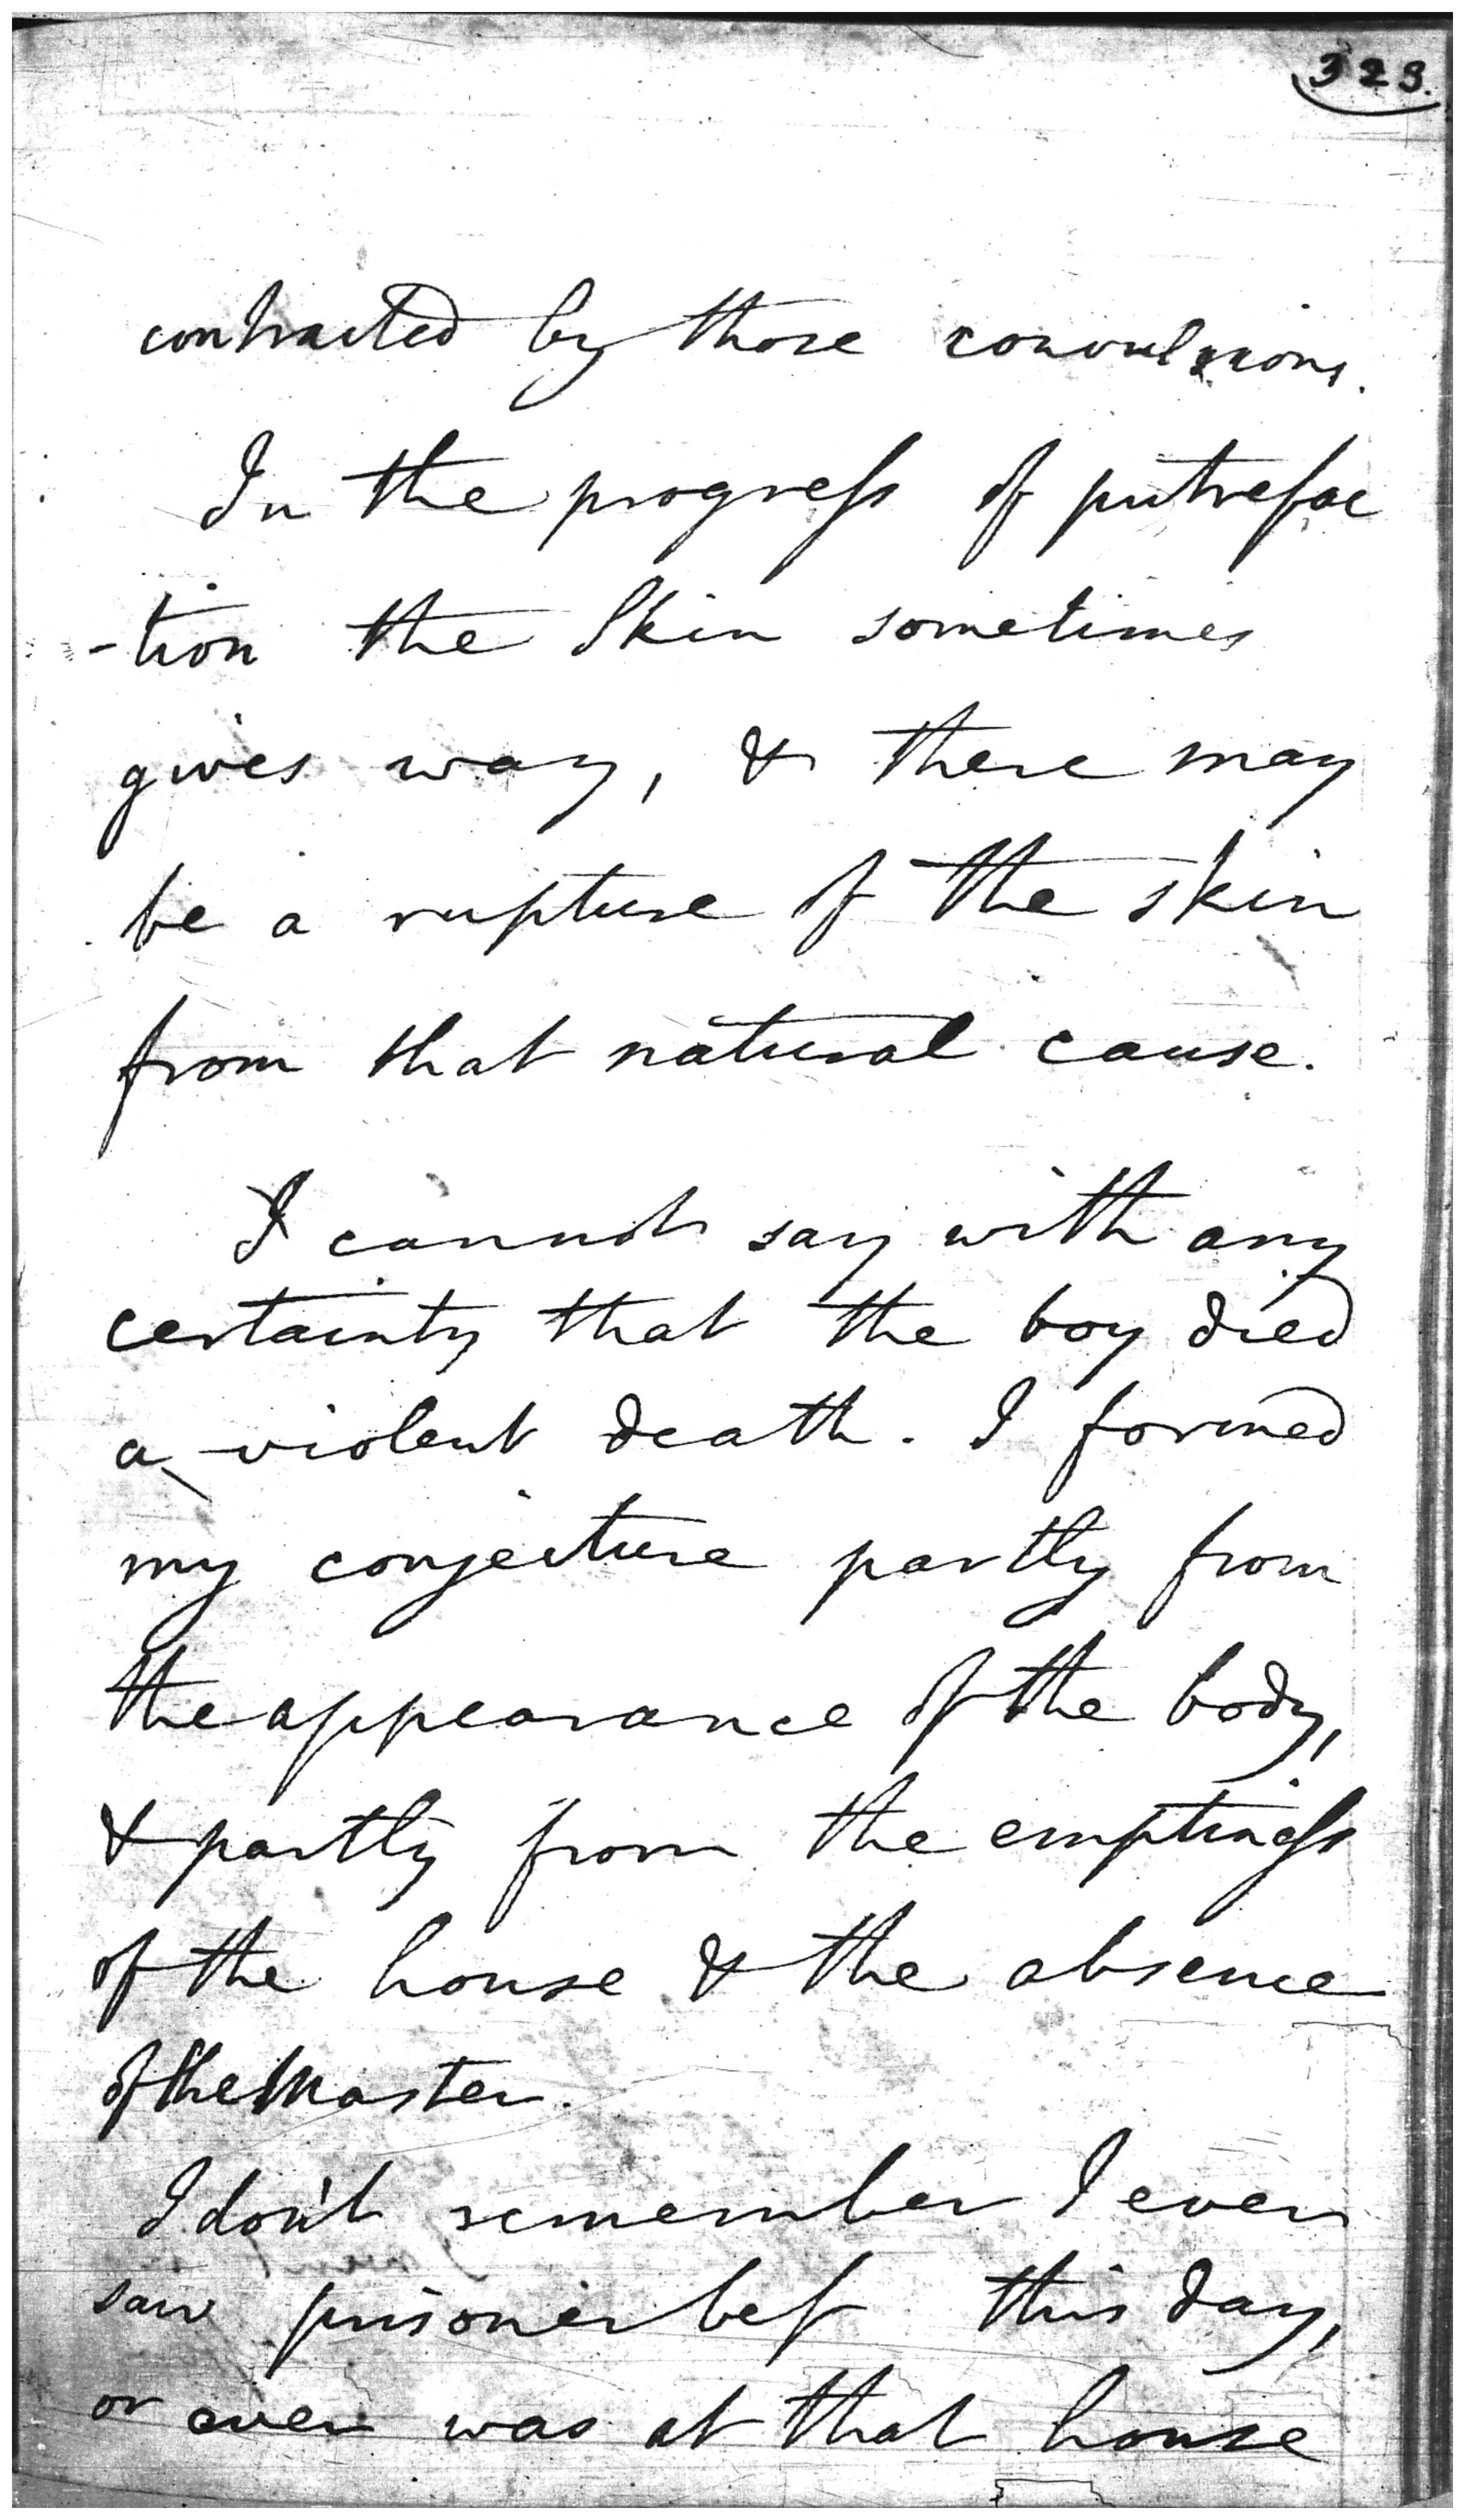 323.
contracted by those convulsions.
In the progress of putrefac
-tion the Skin sometimes
gives way, & there may
be a rupture of the skin
from that natural cause.
I cannot say with any
certainty that the boy died
a violent death. I formed
my conjecture partly from
the appearance of the body,
& partly from the emptiness
of the house & the absence
of the Master.
I don't remember I ever
saw prisoner bef this day,
or ever was at that house